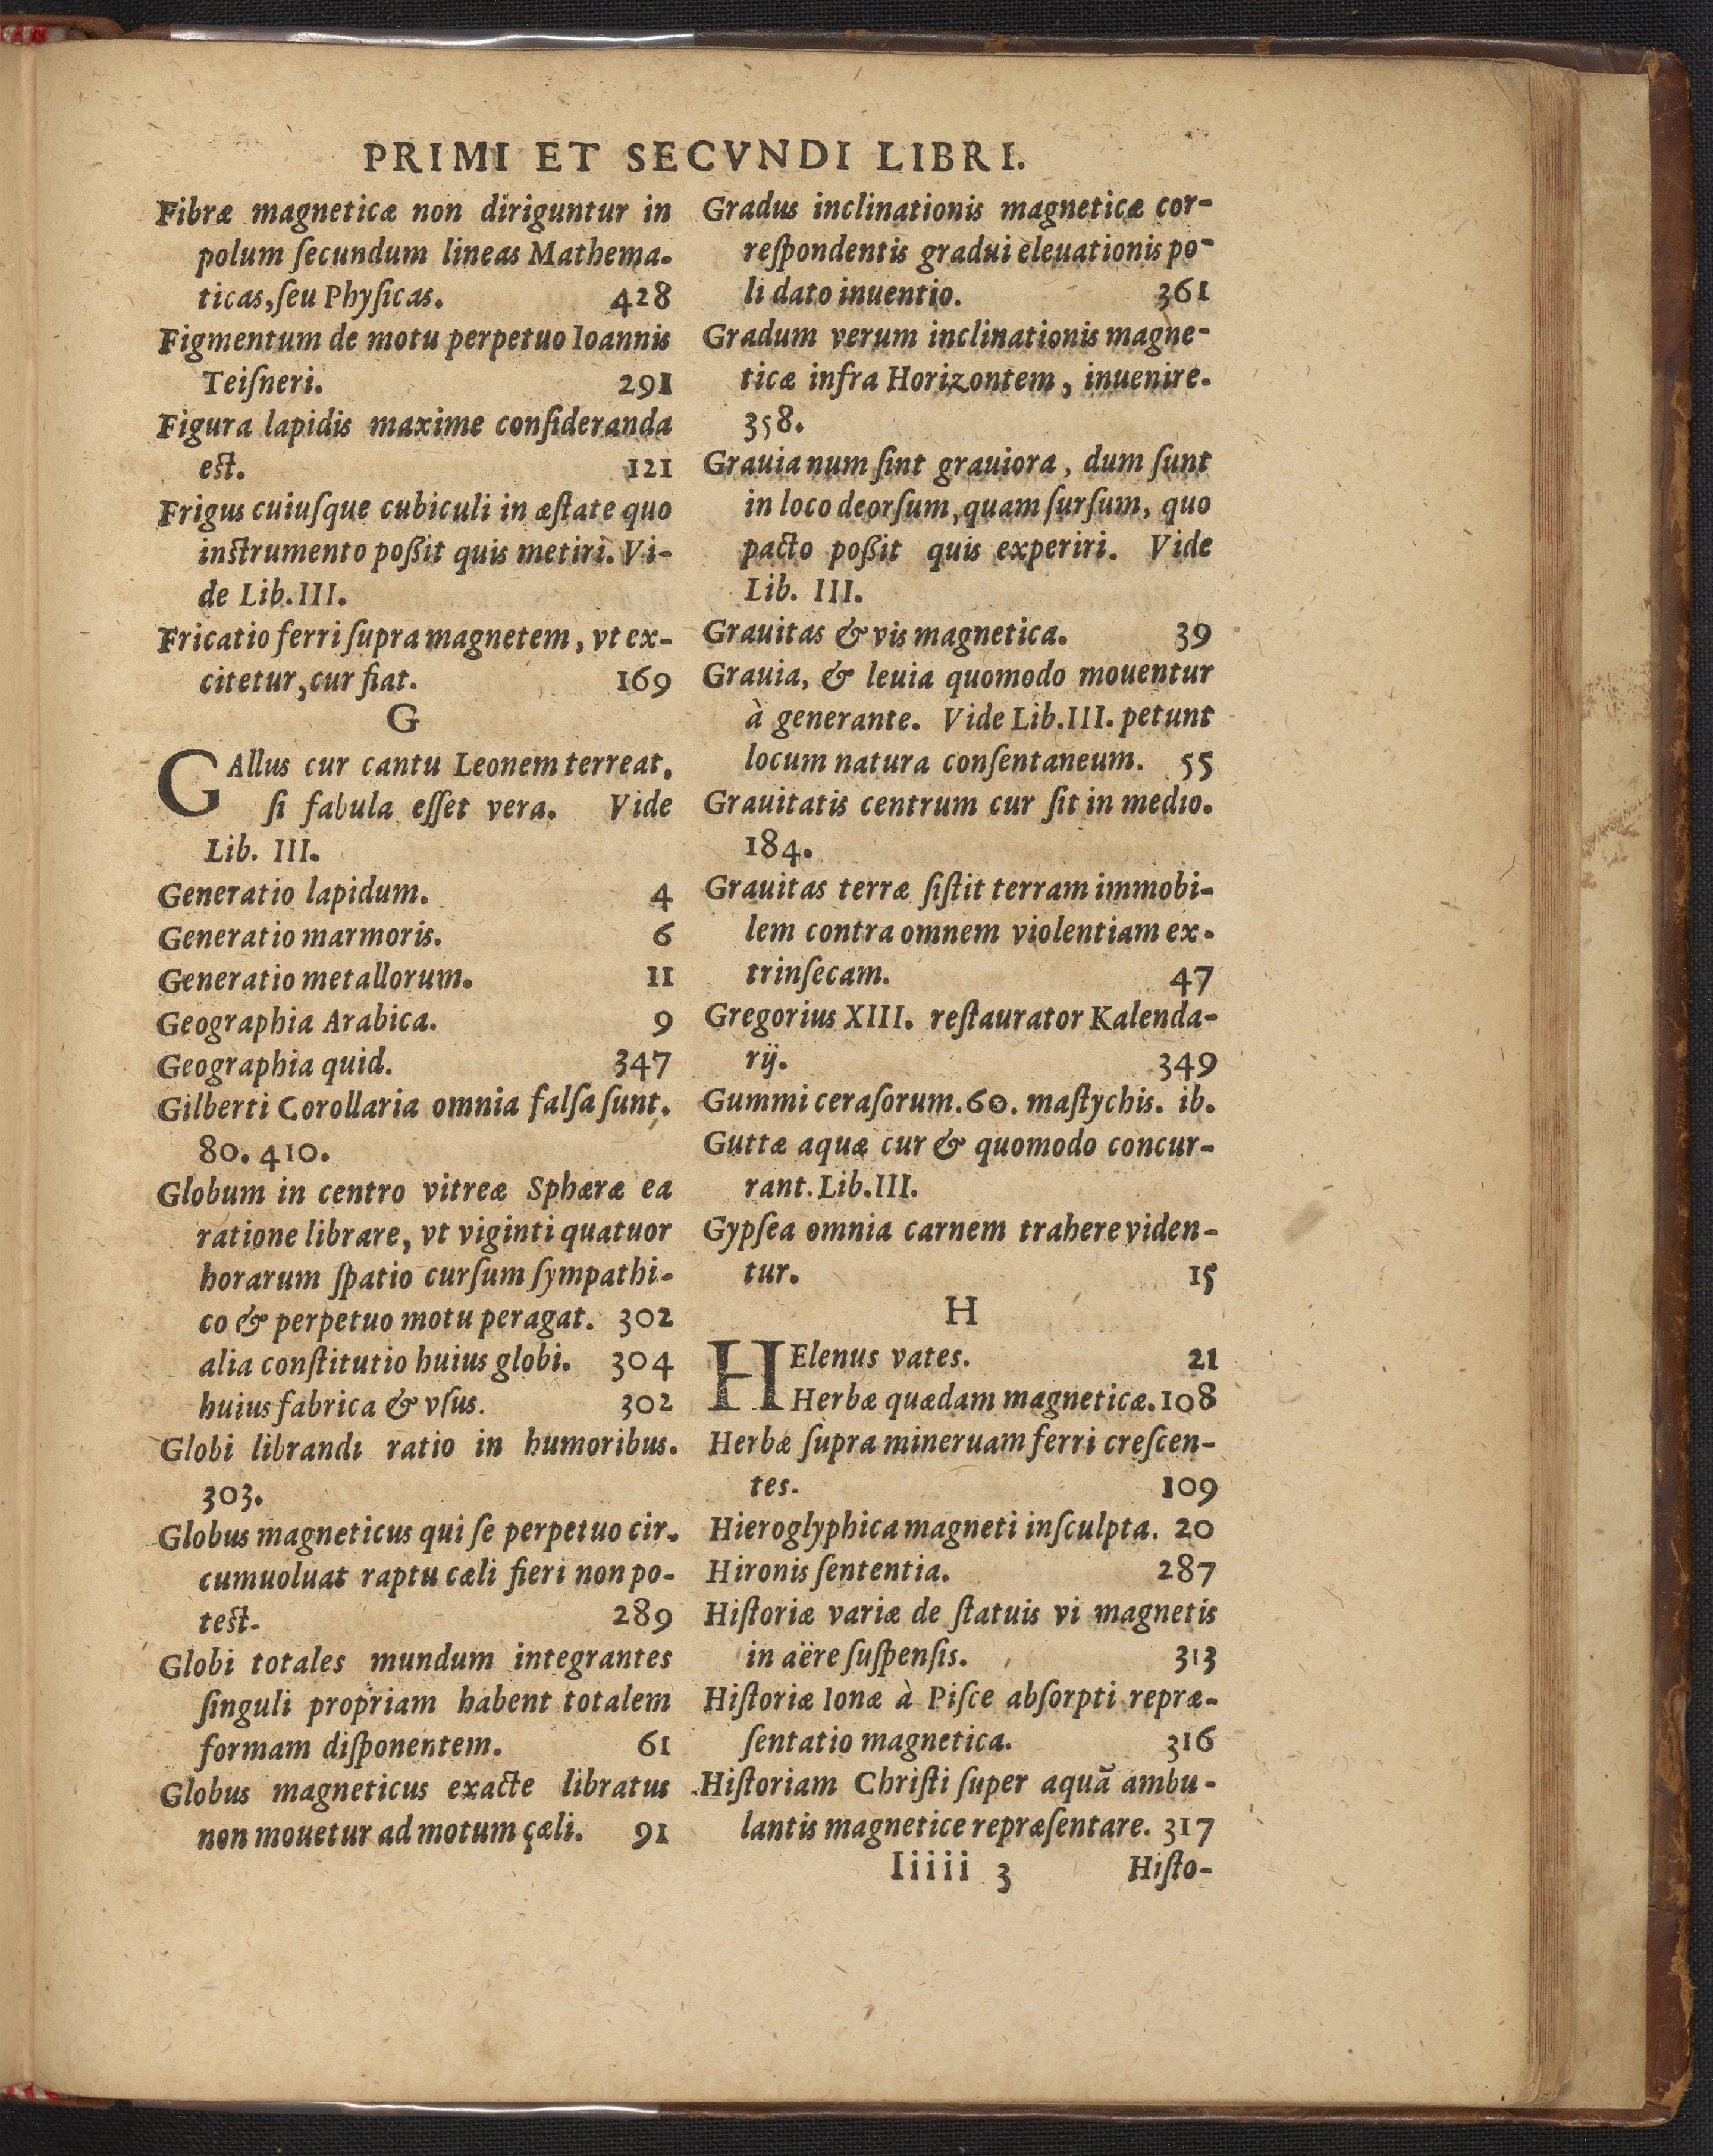 PRIMI ET SECVNDI LIBRI.
Fibræ magneticæ non diriguntur in
polum ſecundum lineas Mathema-
ticas, ſeu Phyſicas. 428
Figmentum de motu perpetuo Ioannis
Teiſneri. 291
Figura lapidis maxime conſideranda
est. 121
Frigus cuiuſque cubiculi in æſtate quo
instrumento poßit quis metiri. Vi-
de Lib. III.
Fricatio ferri ſupra magnetem, vt ex-
citetur, cur fiat. 169
G
GAllus cur cantu Leonem terreat,
ſi fabula eſſet vera. Vide
Lib. III.
Generatio lapidum. 4
Generatio marmoris. 6
Generatio metallorum. 11
Geographia Arabica. 9
Geographia quid. 347
Gilberti Corollaria omnia falſa ſunt.
80. 410.
Globum in centro vitreæ Sphæræ ea
ratione librare, vt viginti quatuor
horarum ſpatio curſum ſympathi-
co & perpetuo motu peragat. 302
alia conſtitutio huius globi. 304
huius fabrica & vſus. 302
Globi librandi ratio in humoribus.
303.
Globus magneticus qui ſe perpetuo cir-
cumuoluat raptu cæli fieri non po-
test. 289
Globi totales mundum integrantes
ſinguli propriam habent totalem
formam diſponentem. 61
Globus magneticus exacte libratus
non mouetur ad motum çæli. 91
Gradus inclinationis magneticæ cor-
reſpondentis gradui eleuationis po-
li dato inuentio. 361
Gradum verum inclinationis magne-
ticæ infra Horizontem, inuenire.
358.
Grauia num ſint grauiora, dum ſunt
in loco deorſum, quam ſurſum, quo
pacto poßit quis experiri. Vide
Lib. III.
Grauitas & vis magnetica. 39
Grauia, & leuia quomodo mouentur
à generante. Vide Lib. III. petunt
locum natura conſentaneum. 55
Grauitatis centrum cur ſit in medio.
184.
Grauitas terræ ſiſtit terram immobi-
lem contra omnem violentiam ex-
trinſecam. 47
Gregorius XIII. reſtaurator Kalenda-
rij. 349
Gummi ceraſorum. 60. maſtychis. ib.
Guttæ aquæ cur & quomodo concur-
rant. Lib. III.
Gypſea omnia carnem trahere viden-
tur. 15
H
HElenus vates. 21
Herbæ quædam magneticæ. 108
Herbæ ſupra mineruam ferri creſcen-
tes. 109
Hieroglyphica magneti inſculpta. 20
Hironis ſententia. 287
Hiſtoriæ variæ de ſtatuis vi magnetis
in aëre ſuſpenſis. 313
Hiſtoriæ Ionæ à Piſce abſorpti repræ-
ſentatio magnetica. 316
Hiſtoriam Chriſti ſuper aquā ambu-
lantis magnetice repræſentare. 317
Iiiii 3 Hiſto-